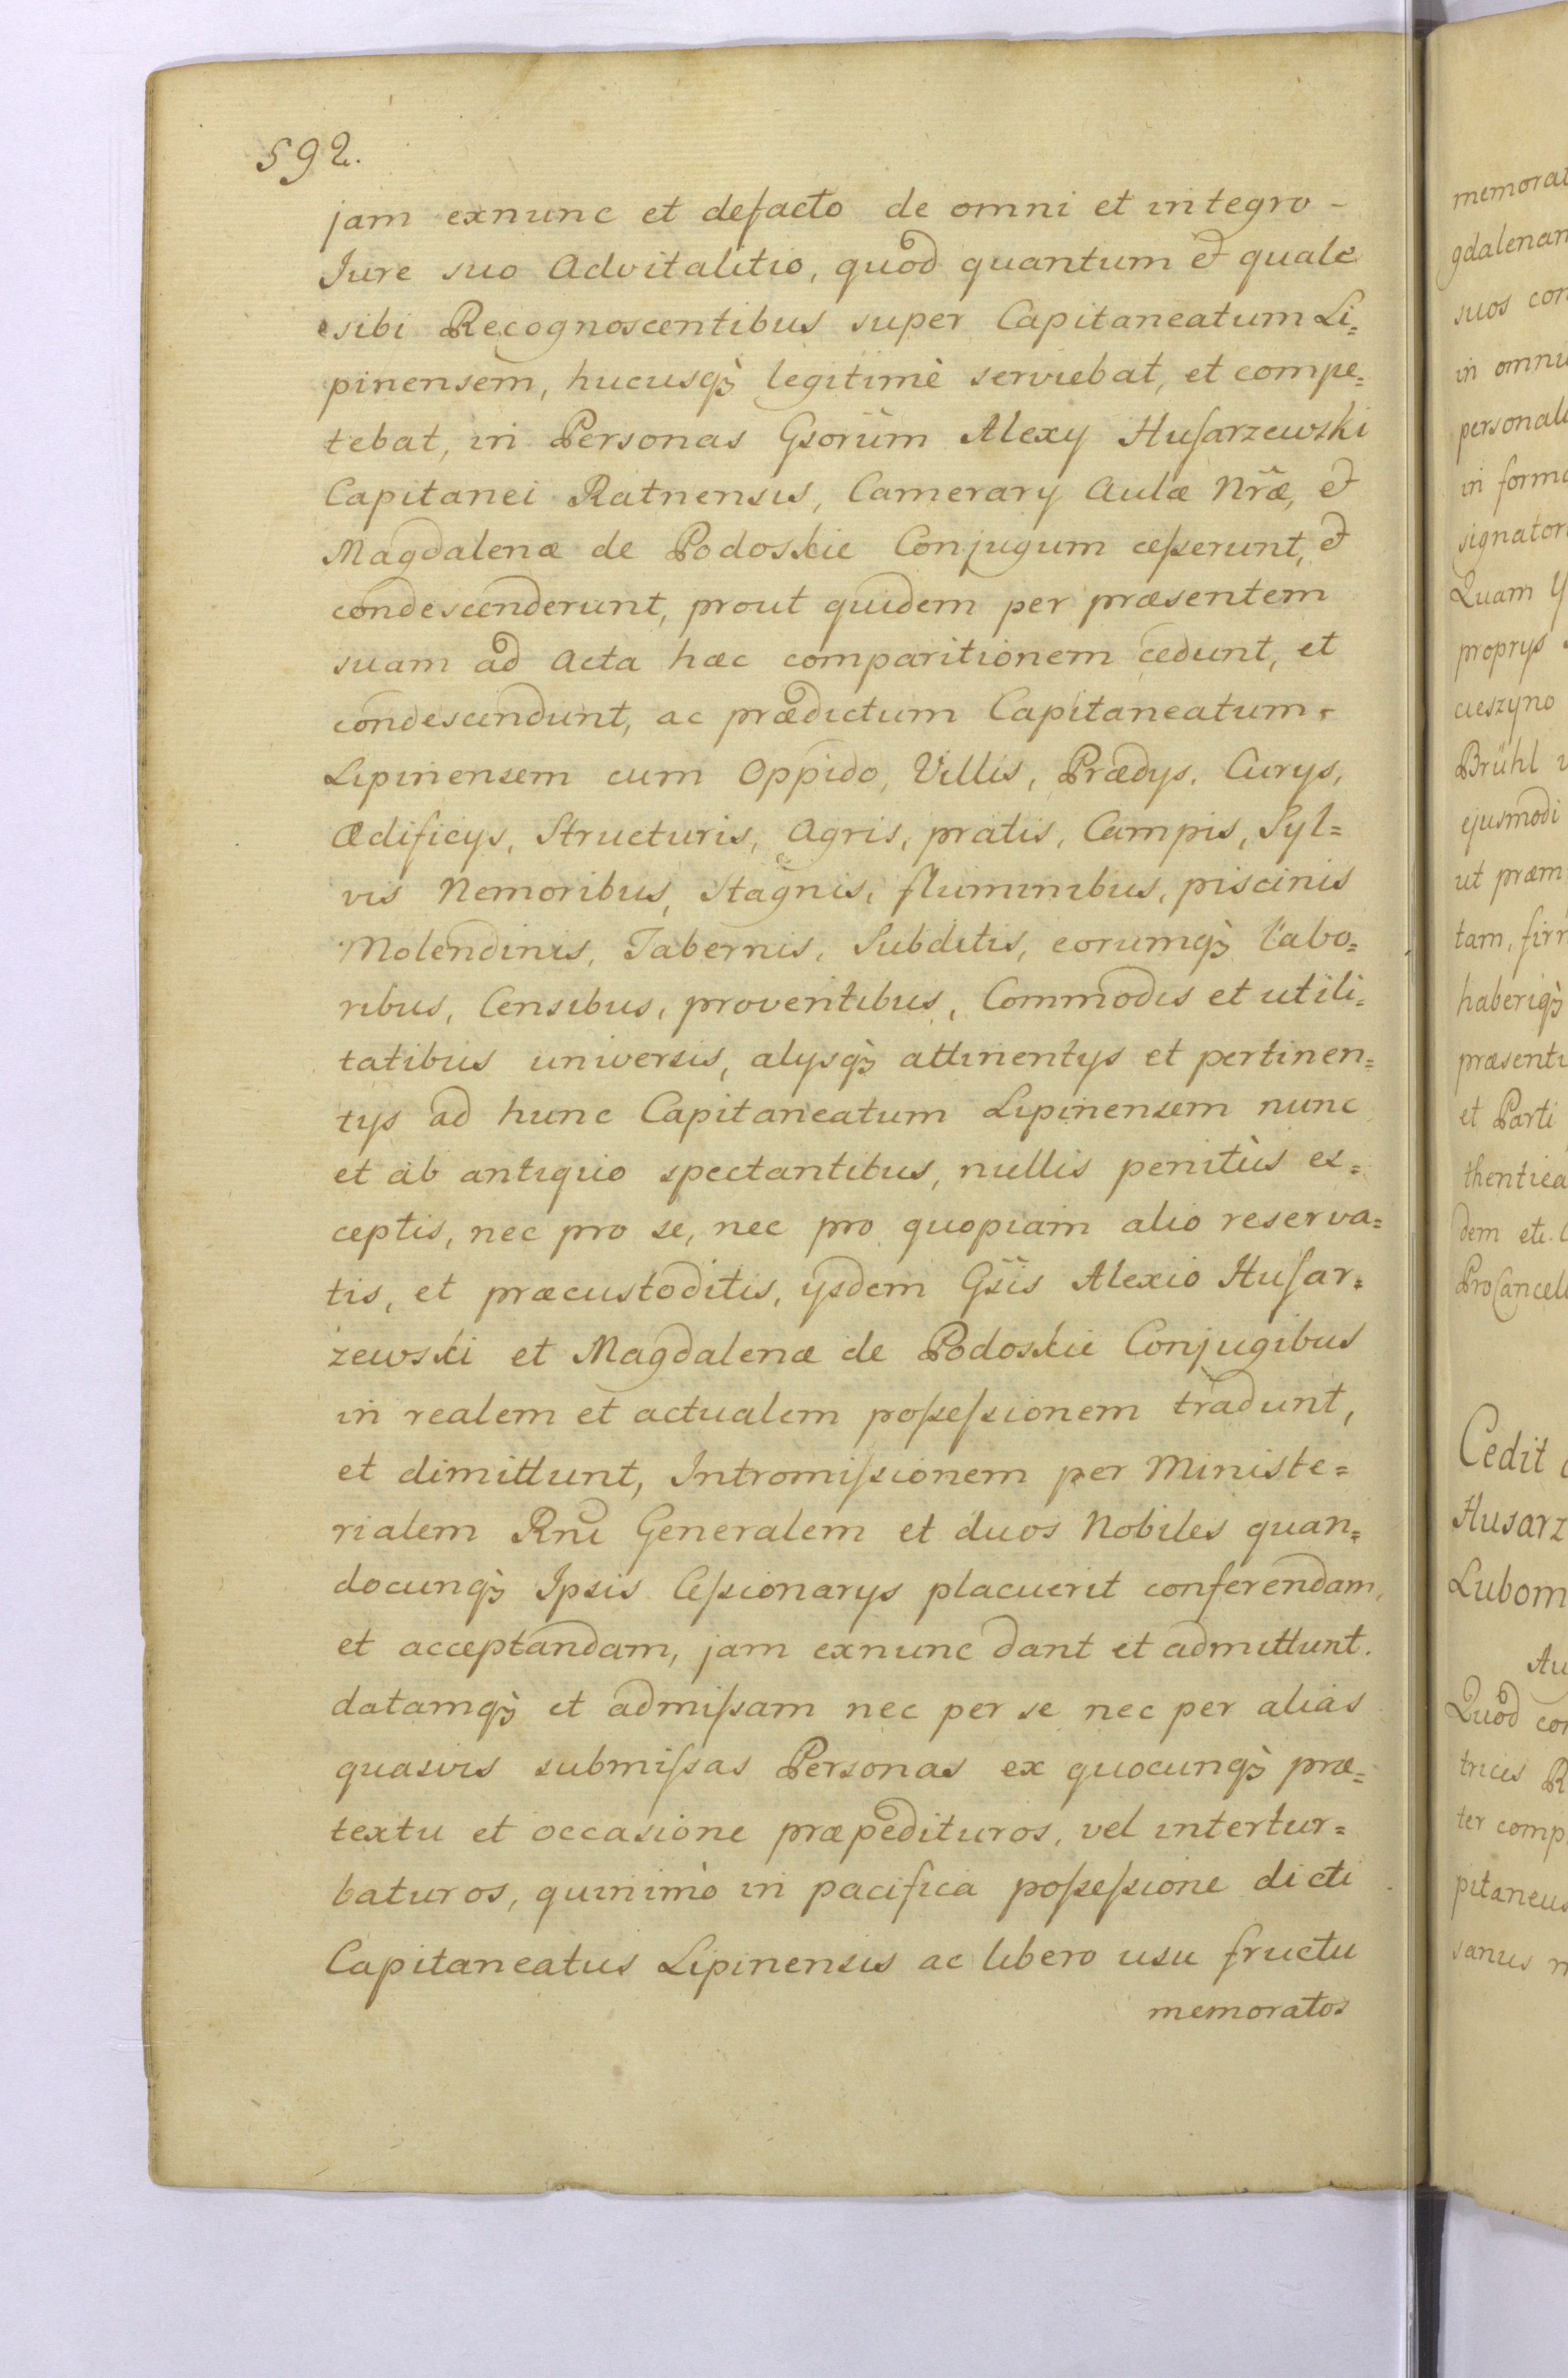 592.
jam exnunc et defacto de omni et integro -
Jure suo Advitalitio, quod quantum et quale
sibi Recognoscentibus super Capitaneatum Li=
pinensem, hucusqꝫ legitimè serviebat, et compe=
tebat, in Personas Gsorum Alexy Huſarzewski
Capitanei Ratnensis, Camerary Aulæ Nr̃æ, et
Magdalenæ de Podoskie Conjugum ceſserunt, et
condescenderunt, prout quidem per præsentem
suam ad Acta hæc comparitionem cedunt, et
condescendunt, ac prædictum Capitaneatum
Lipinensem cum Oppido, Villis, Prædys, Curys,
Ædificys, Structuris, Agris, pratis, Campis, Syl=
vis Nemoribus, Stagnis, fluminibus, piscinis
Molendinis, Tabernis, Subditis, eorumqꝫ labo=
ribus, Censibus, proventibus, Commodis et utili=
tatibus universis, alysqꝫ attinentys et pertinen=
tys ad hunc Capitaneatum Lipinensem nunc
et ab antiquo spectantibus, nullis penitùs ex=
ceptis, nec pro se, nec pro quopiam alio reserva=
tis, et præcustoditis, ysdem Gsis Alexio Huſar=
zewski et Magdalenæ de Podoskie Conjugibus
in realem et actualem poſseſsionem tradunt,
et dimittunt, Intromiſsionem per Ministe=
rialem Rni Generalem et duos Nobiles quan=
docunqꝫ Ipsis Ceſsionarys placuerit conferendam,
et acceptandam, jam exnunc dant et admittunt.
datamqꝫ et admiſsam nec per se nec per alias
quasvis submiſsas Personas ex quocunqꝫ præ=
textu et occasione præpedituros, vel intertur=
baturos, quinimò in pacifica poſseſsione dicti
Capitaneatus Lipinensis ac libero usu fructu
memoratos
gdalenam
suos
in
in
Quam
proprys
cieszyno
Brühl
ejusmodi
ut
tam,
haberiqꝫ
et Parti
dem
Cedit
Quod